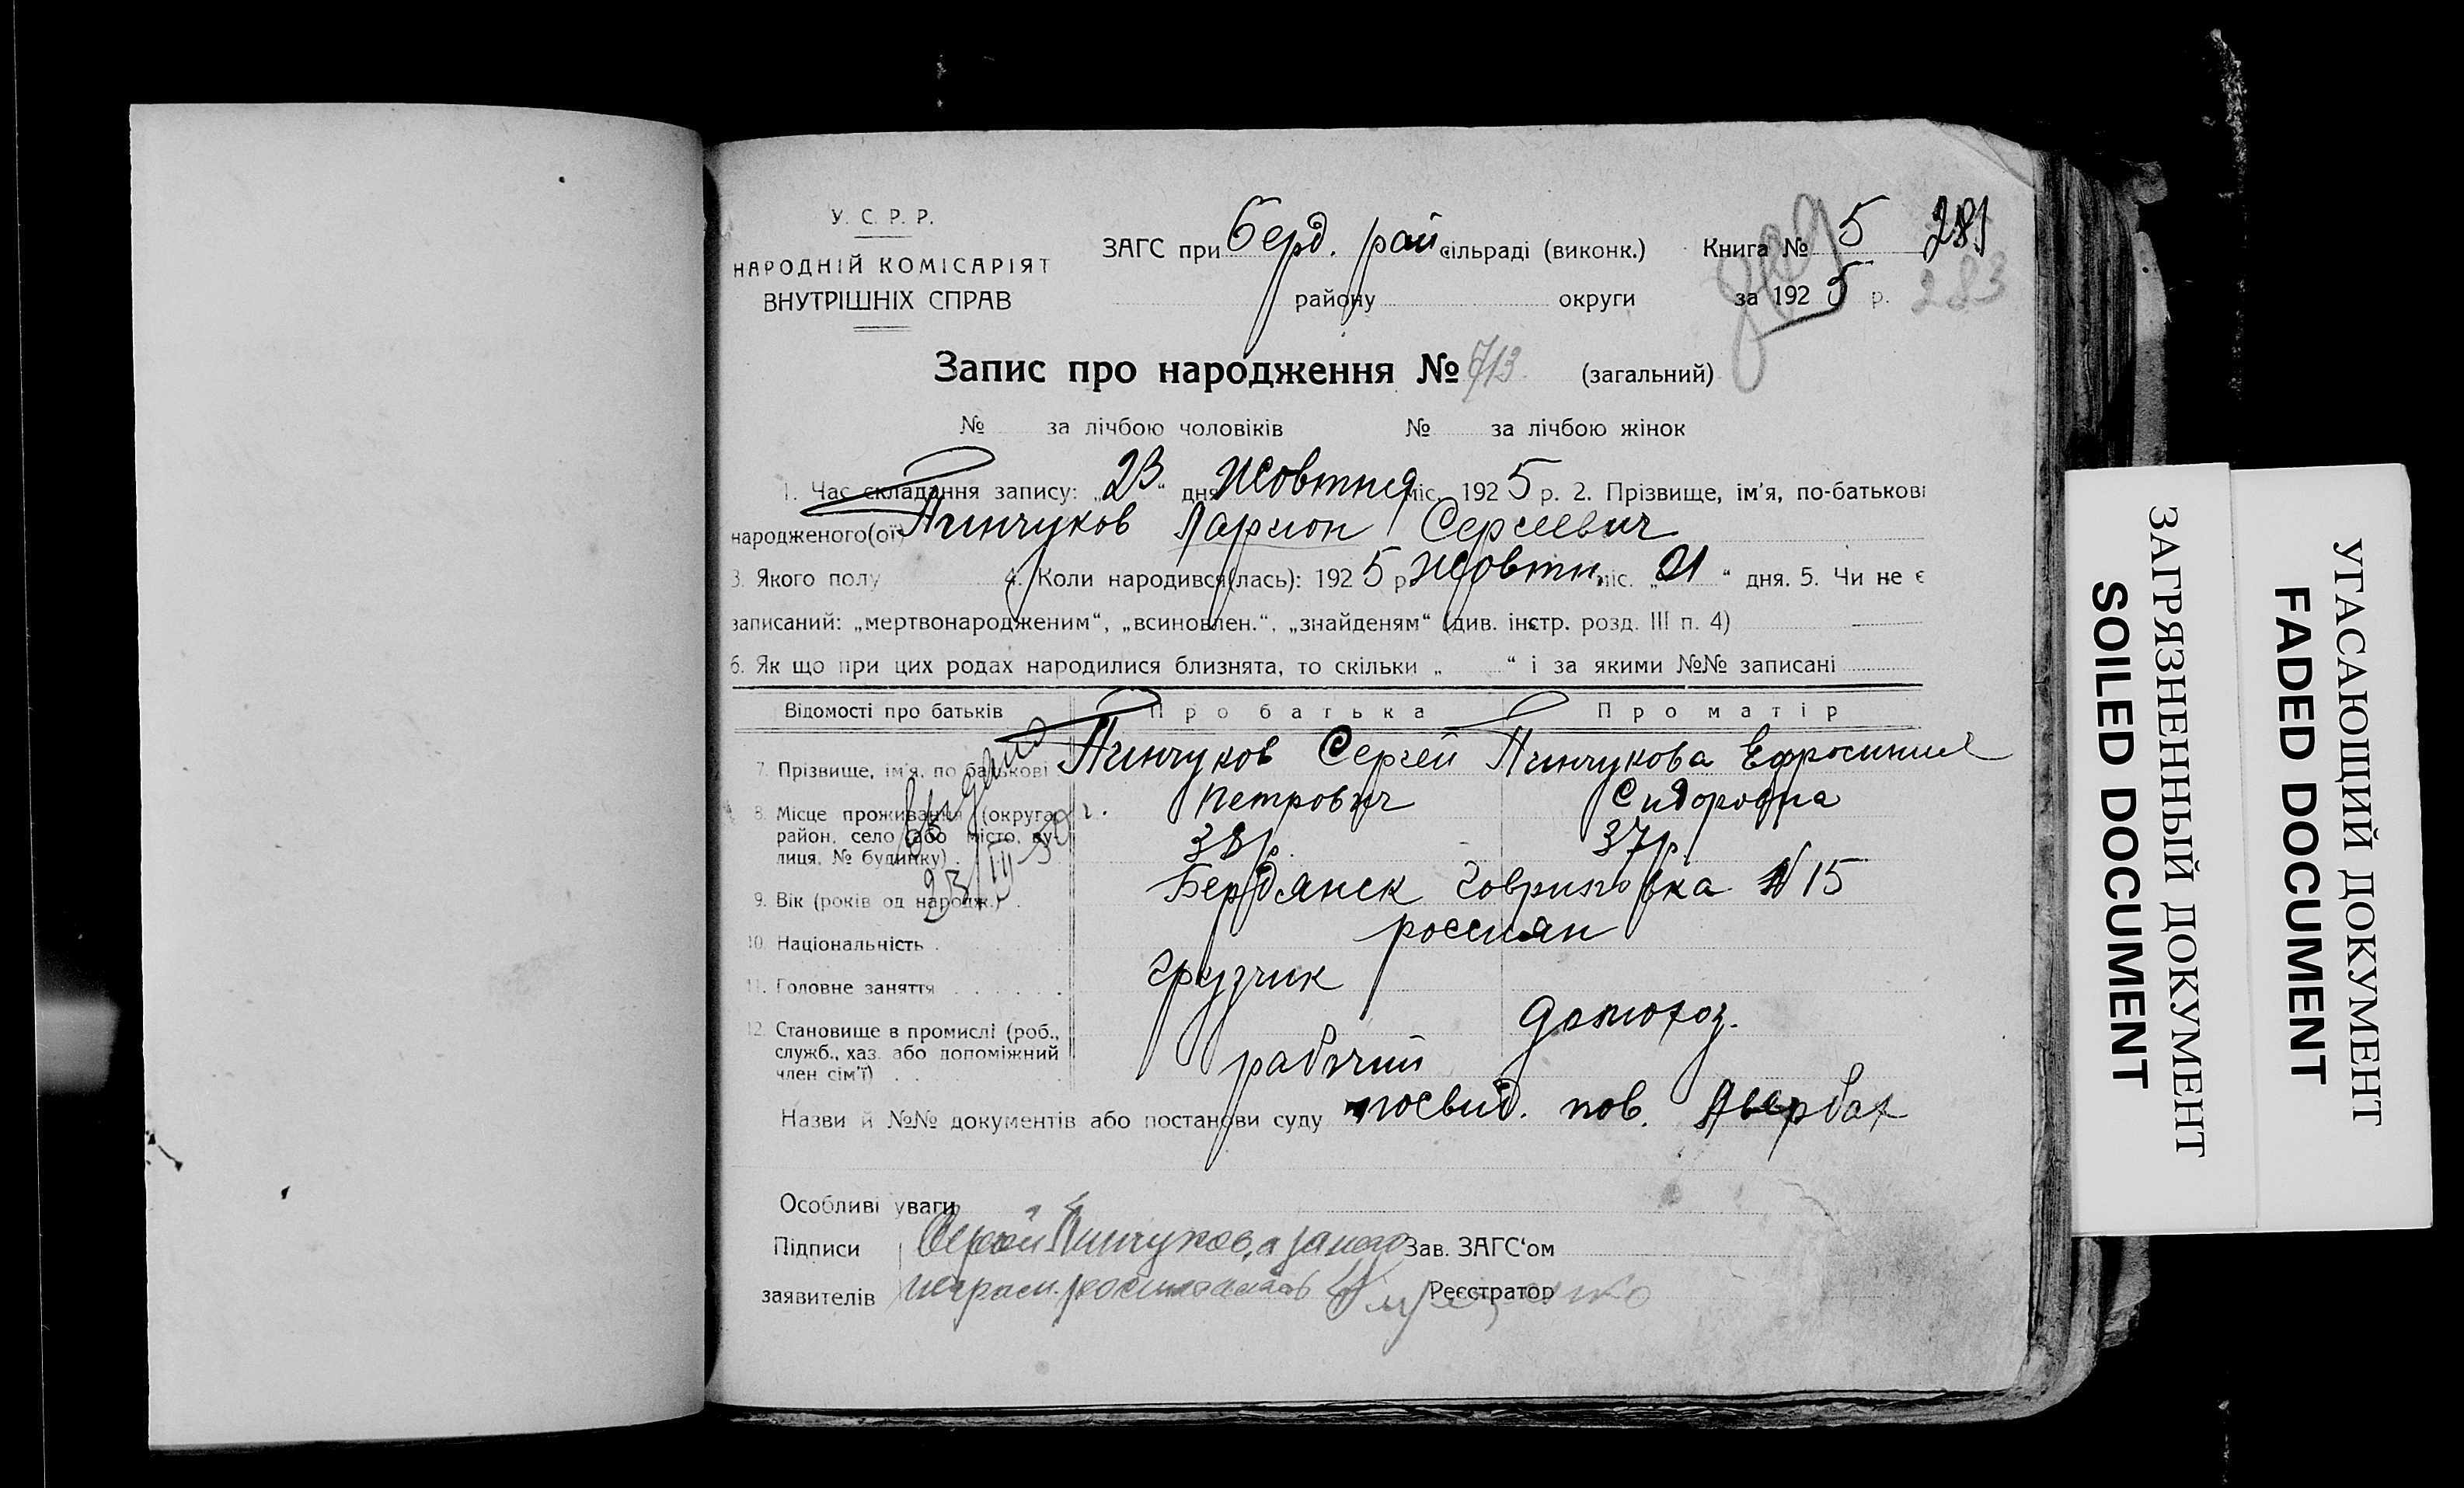 У. С. Р. Р.
НАРОДНІЙ КОМІСАРІЯТ
ВНУТРІШНІХ СПРАВ
ЗАГС при Берд. рай сільраді (виконк.)
району округи
Книга № 5 281
за 1925 р. 283
Запис про народження № 713 (загальний)
№ за лічбою чоловіків № за лічбою жінок
1. Час складання запису: „23“ дня Жовтня міс. 1925 р. 2. Прізвище, ім'я, по-батькові
народженого(ої) Пинчуков Ларион Сергеевич
3. Якого полу 4. Коли народився(лась): 1925 р Жовтн. міс. „21“ дня. 5. Чи не є
записаний: „мертвонародженим“, „всиновлен.“, „знайденям“ (див. інстр. розд. III п. 4)
6. Як що при цих родах народилися близнята, то скільки „ “ і за якими №№ записані
Відомості про батьків Про батька Про матір
7. Прізвище, ім'я, по батькові Пинчуков Сергей Пинчукова Ефросиния
Петрович Сидоровна
8. Місце проживання (округа,
район, село або місто, ву-
лиця, № будинку) 38 р. 37 р.
выдано
23/III-50 г.
9. Вік (років од народж.) Бердянск N 15
10. Національність россиян
11. Головне заняття грузчик
домохоз.
12. Становище в промислі (роб.,
служб., хаз. або допоміжний
член сім'ї) рабочий
Назви й №№ документів або постанови суду посвид. пов. Авербах
Особливі уваги
Підписи Сергей Пинчуков, а за него Зав. ЗАГС'ом
заявителів неграм. Реєстратор
ЗАГРЯЗНЕННЫЙ ДОКУМЕНТ
SOILED DOCUMENT
УГАСАЮЩИЙ ДОКУМЕНТ
FADED DOCUMENT